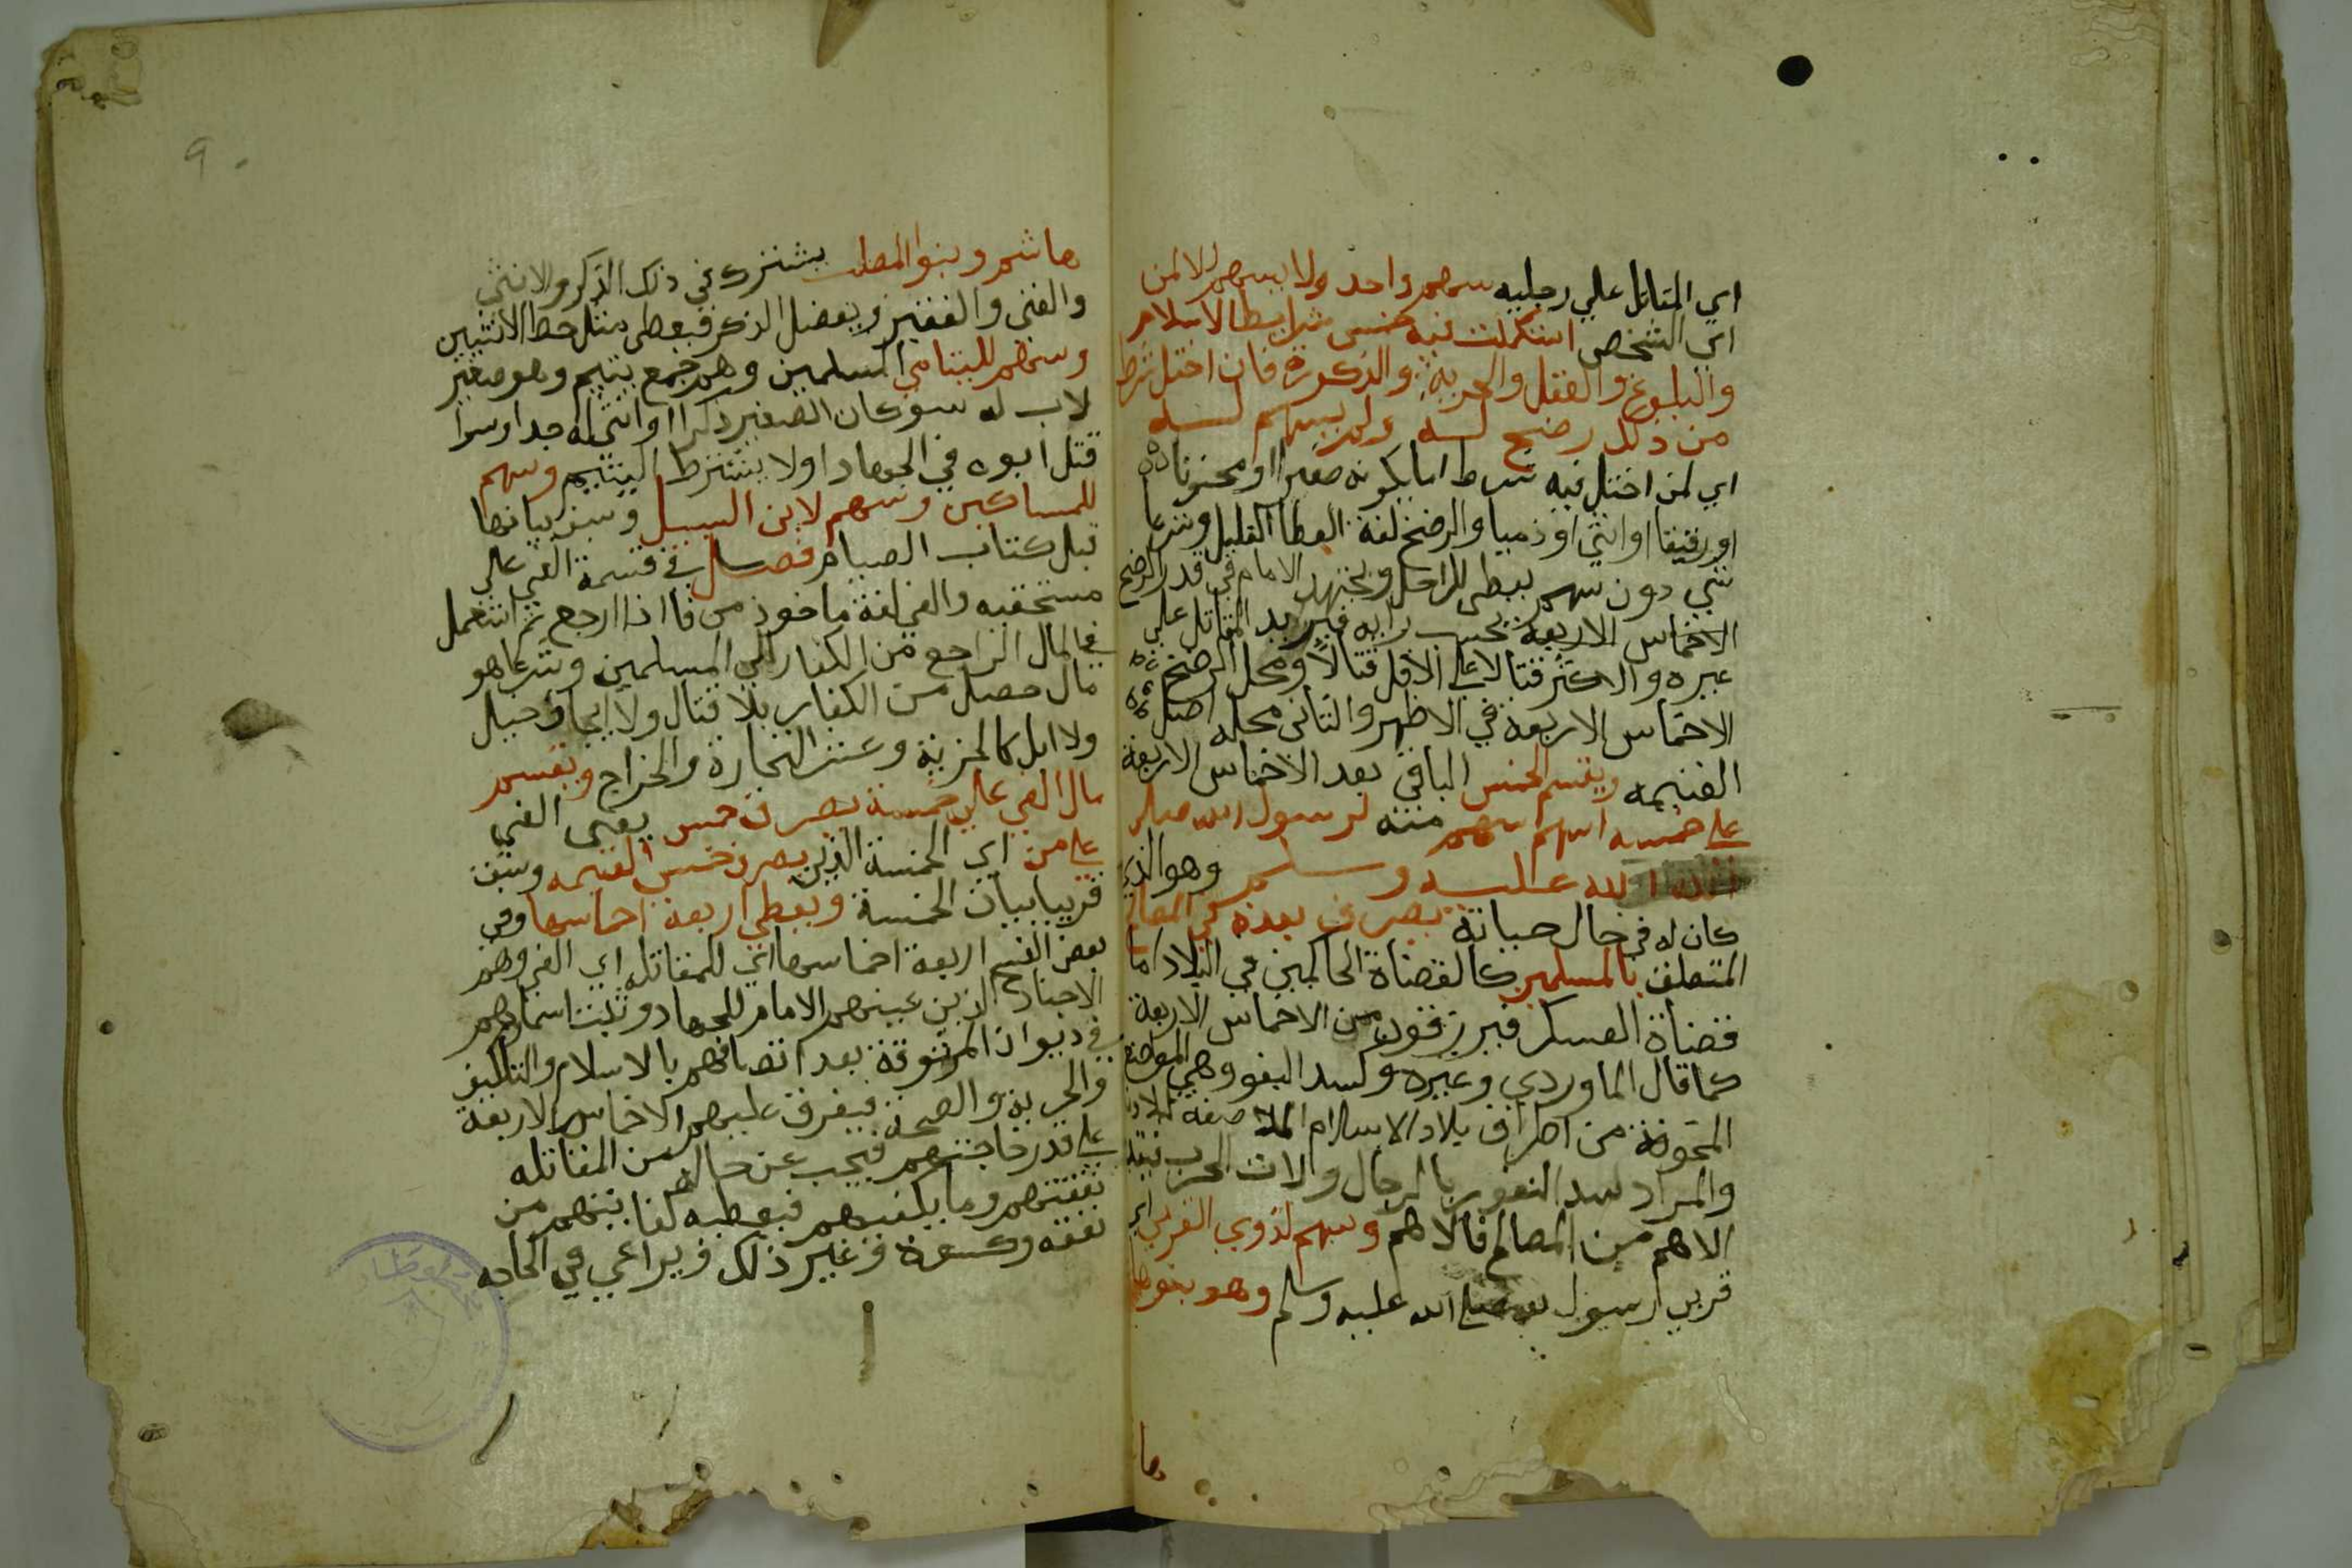 اي المقاتل علي رجليه سهم واحد ولا يسهم الا لمن
اي الشخص استكملت فيه خمس شرايط الاسلام
والبلوغ والعقل والحرية والذكورة فان اختل شرط
من ذلك رضخ لسه ولم يسهم لسه
اي لمن اختل فيه شرط اما لكونه صغيرا او مجنونا
او رقيقا او انثي او ذميا والرضخ لغة العطا القليل وشرعا
شي دون سهم يعطى للراجل ويجتهد الامام في قدر الرضخ
الاخماس الاربعة بحسب رايه فيزيد المقاتل علي
غيره والاكثر قتالا على الاقل قتالا ومحل الرضخ
الاخماس الاربعة في الاظهر والثانى محله اصل
الغنيمه ويقسم الخمس الباقي بعد الاخماس الاربعة
على خمسه اسهم سهم منه لرسول الله صلى
الله عليه وسلم وهو الذي
كان له في حال حياته يصرف بعده في المصالح
المتعلقة بالمسلمين كالقضاة الحاكمين في البلاد اما
قضاة العسكر فيرزقون من الاخماس الاربعة
كما قال الماوردي وغيره وكسد الثغور وهي المواضع
المخوفة من اطراف بلاد الاسلام الملاصقة لبلادنا
والمراد سد الثغور بالرجال والات الحرب فيقدم
الاهم من المصالح فالاهم وسهم لذوي القربي اي
قربى رسول الله صلى الله عليه وسلم وهو بنوها
ها
٩٠
هاشم وبنوا المطلب يشترك في ذلك الذكر والانثي
والغني والفقير ويفضل الذكر فيعطى مثل حظ الانثيين
وسهم لليتامي المسلمين وهو جمع يتيم وهو صغير
لا اب له سو كان الصغير ذكرا او انثي له جد او سوا
قتل ابوه في الجهاد او لا يشترط اليتيم وسهم
للمساكين وسهم لابن السبيل وسبق بيانها
قبل كتاب الصيام فصل في قسمة الفي على
مستحقيه والفي لغة ماخوذ من فا اذا رجع ثم استعمل
في المال الراجع من الكفار الي المسلمين وشرعا هو
مال حصل من الكفار بلا قتال ولا ايجاف خيل
ولا ابل كالجزية وعشر التجارة والخراج ويقسم
مال الفي علي خمسة يصرف خمس يعنى الفي
على من اي الخمسة الذين يصرف خمس الغنيمه وسبق
قريبا بيان الخمسة ويعطي اربعة اخماسها وفي
بعض النسخ اربعة اخماسها اي للمقاتله اي الفي وهم
الاجناد الذين عينهم الامام للجهاد وثبت اسماوهم
في ديوان المرتزقة بعد اتصافهم بالاسلام والتكليف
والحرية والصحة فيفرق عليهم الاخماس الاربعة
على قدر حاجتهم فيجب عن حال من المقاتله
نفقتهم وما يكفيهم فيعطيه كفايتهم من
نفقه وكسوة وغير ذلك ويراعي في الحاجه